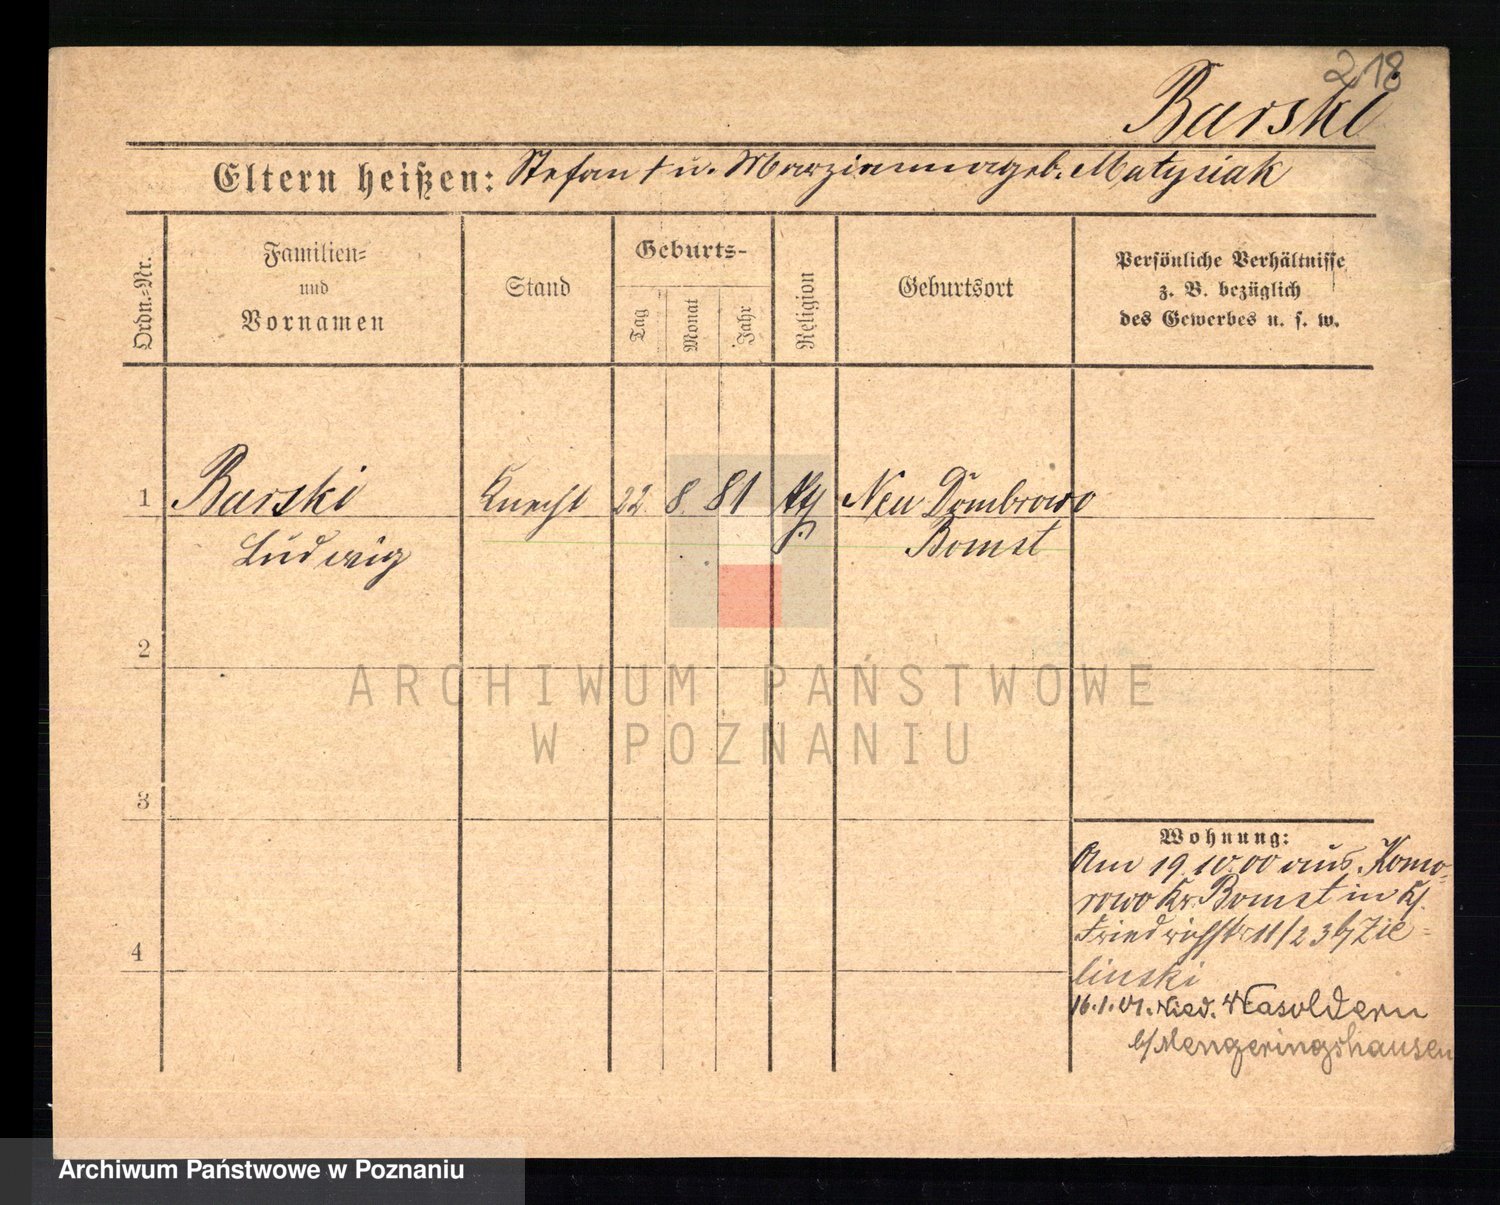 218
Barski
Eltern heißen: Stefan † u. Marzianna geb. Matysiak
Ordn.-Nr.
Familien-
und
Vornamen
Stand
Geburts-
Tag
Monat
Jahr
Religion
Geburtsort
Persönliche Verhältnisse
z. B. bezüglich
des Gewerbes u. s. w.
1 Barski Knecht 22 8 81 kth Neu Dombrowo
Ludwig Bomst
2
3
4
Wohnung:
Am 19.10.00 aus Komo-
rowo Kr. Bomst in Kl.
Friedrichstr 11/23 b/ Zie-
linski
16.1.01. Nied.
b/ Mengeringshausen
ARCHIWUM PAŃSTWOWE
W POZNANIU
Archiwum Państwowe w Poznaniu